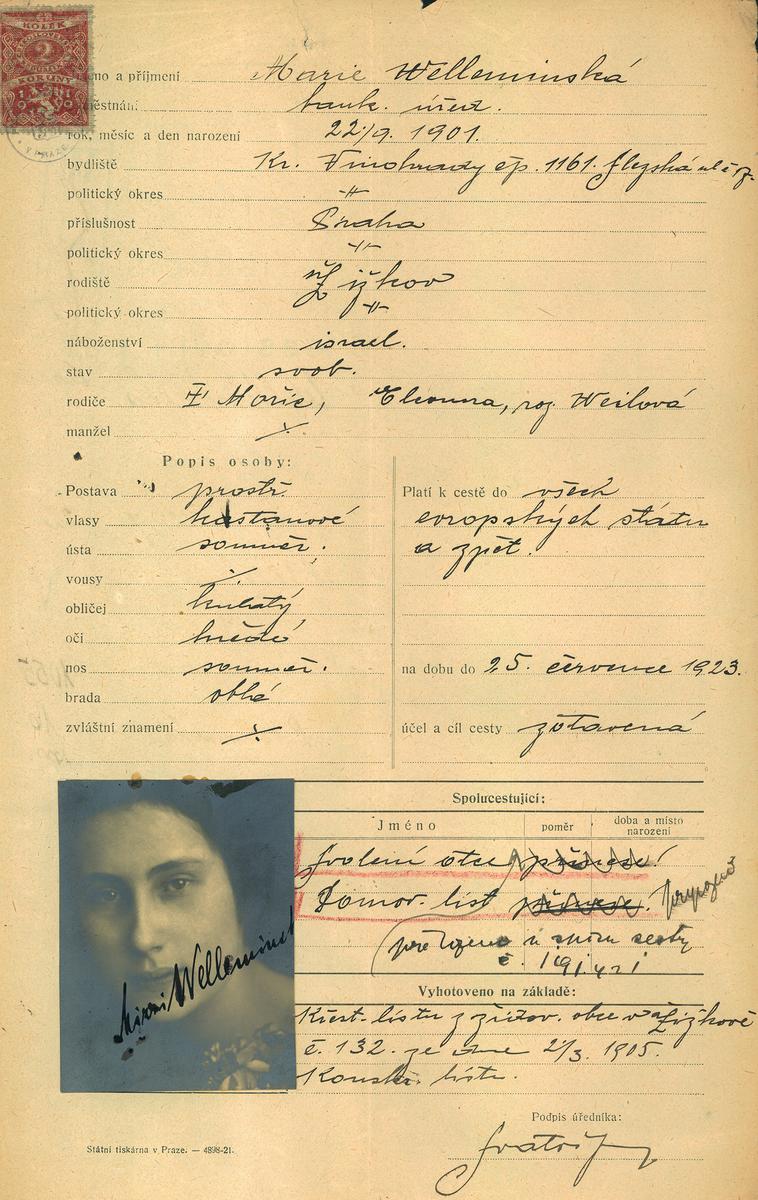 KOLEK
2
KORUNY
V PRAZE
jméno a příjmení Marie Welleminská
zaměstnání: bank. úřed.
rok, měsíc a den narození 22/9. 1901.
bydliště Kr. Vinohrady čp. 1161.
politický okres -"-
příslušnost Praha
politický okres -"-
rodiště Žižkov
politický okres -"-
náboženství israel.
stav svob.
rodiče Mořic, Eleonora, roz. Weilová
manžel ·/·
Popis osoby:
Postava prostř.
vlasy kaštanové
ústa souměr.
vousy ·/·
obličej kulatý
oči hnědé
nos souměr.
brada oblá
zvláštní znamení ·/·
Platí k cestě do všech
evropských států
a zpět.
na dobu do 25. července 1923.
účel a cíl cesty zotavená
Spolucestující:
Jméno poměr doba a místo narození
Svolení otce přinese!
Domov. list přinese!
Mizzi Welleminsk
Vyhotoveno na základě:
Křest. listu z židov. obce v Žižkově
č. 132. ze dne 2/3. 1905.
Konskr. listu.
Podpis úředníka:
Státní tiskárna v Praze. — 4898-21.